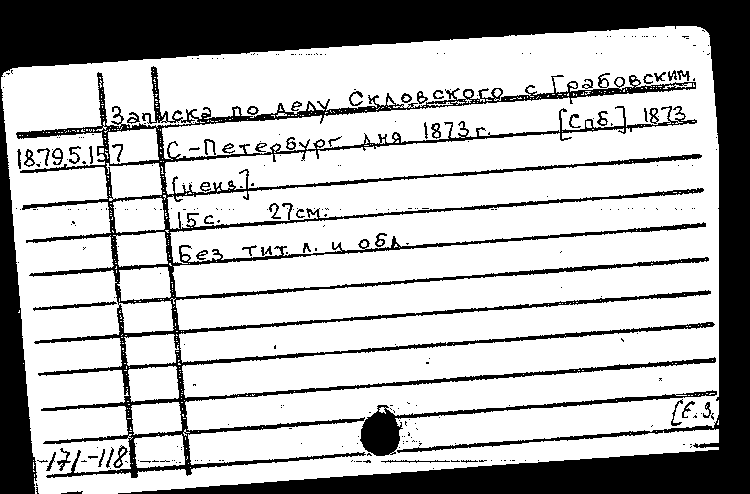 Записка по делу Скловского с Грабовским.
18.79.5.157 С.-Петербург дня 1873 г. [Спб.], 1873
[ценз.].
15 с. 27 см.
Без тит. л. и обл.
[Е.З.]
171-118